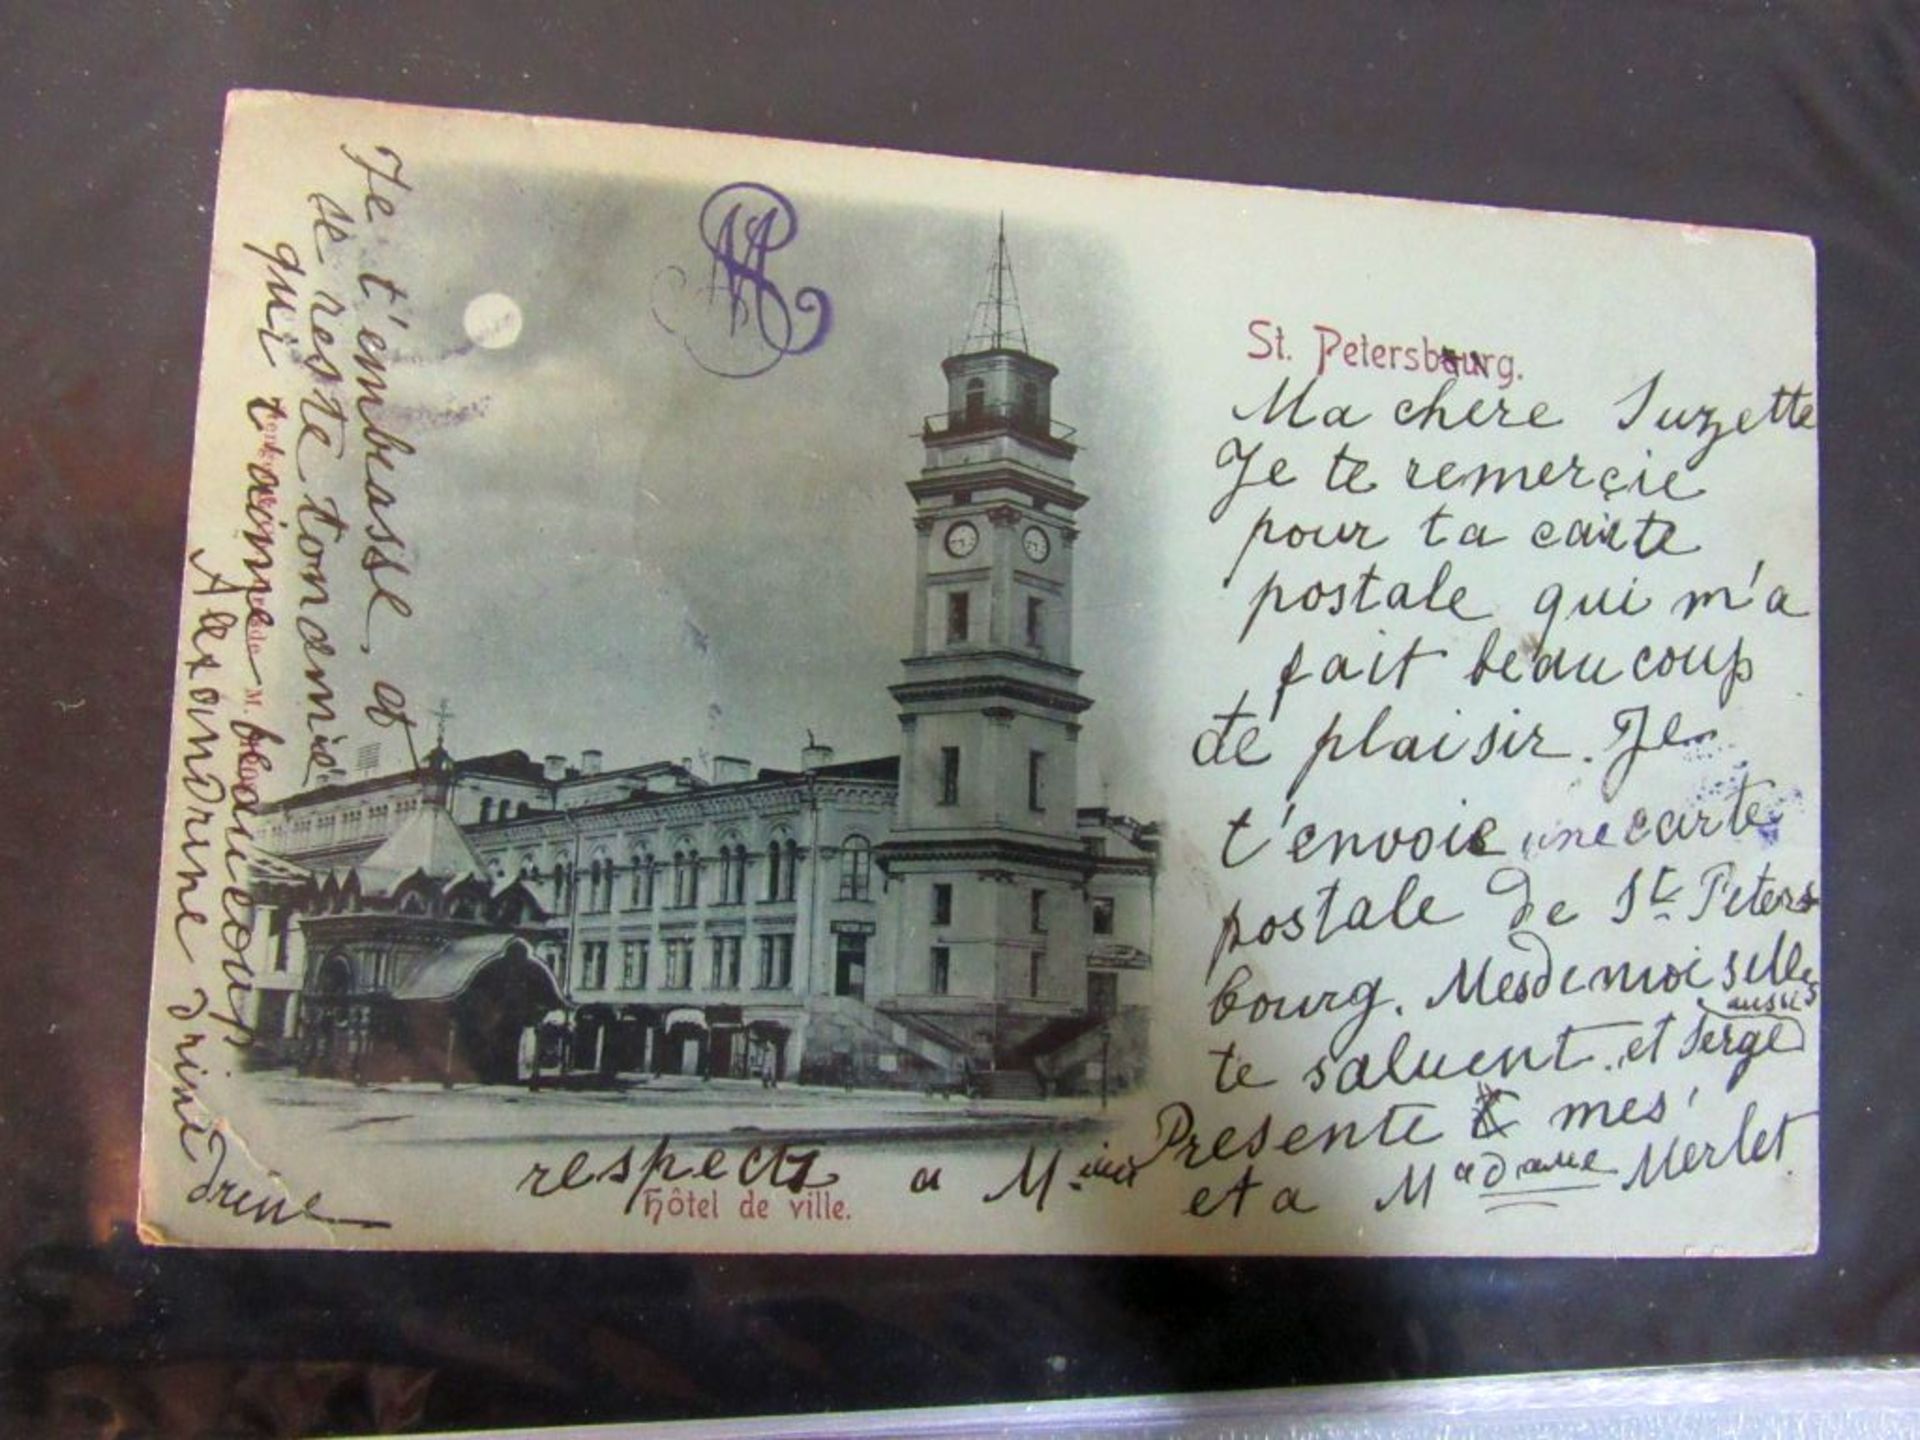 St. Petersbourg.
Ma chere Suzette
Je te remerçie
pour ta carte
postale qui m'a
fait beaucoup
de plaisir. Je
t'envoie une carte
postale de St. Peters
bourg. Mesdemoiselles
te saluent. et Serge aussi
Presente mes
respects a M
et a Madame Merlet.
Hôtel de ville.
Je t'embrasse, et
je reste ton amie
qui t'aime beaucoup
Alexandrine